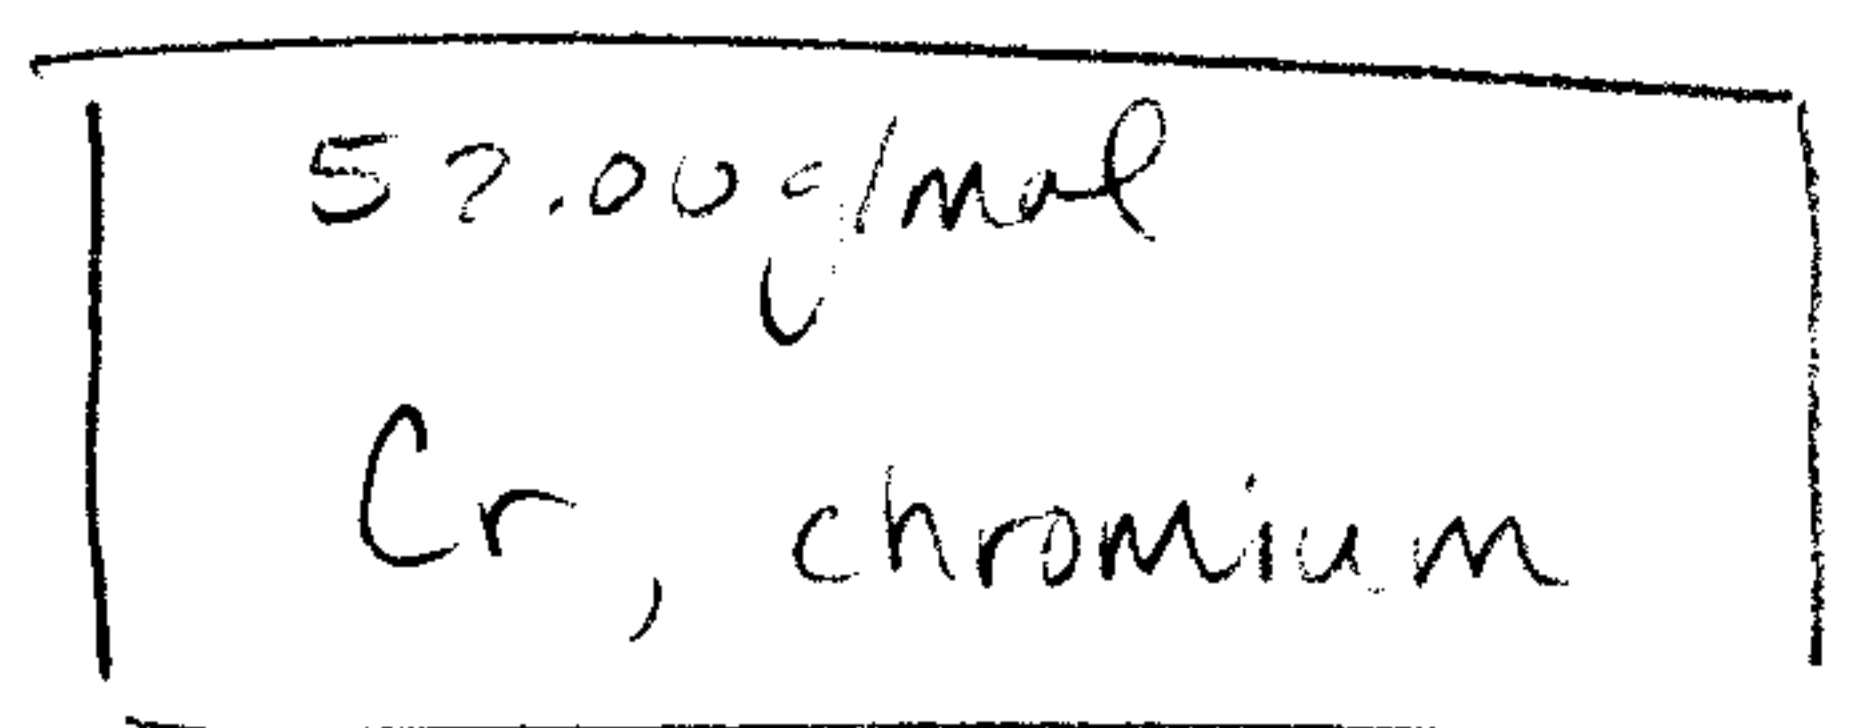 52.00 g/mol
Cr, chromium